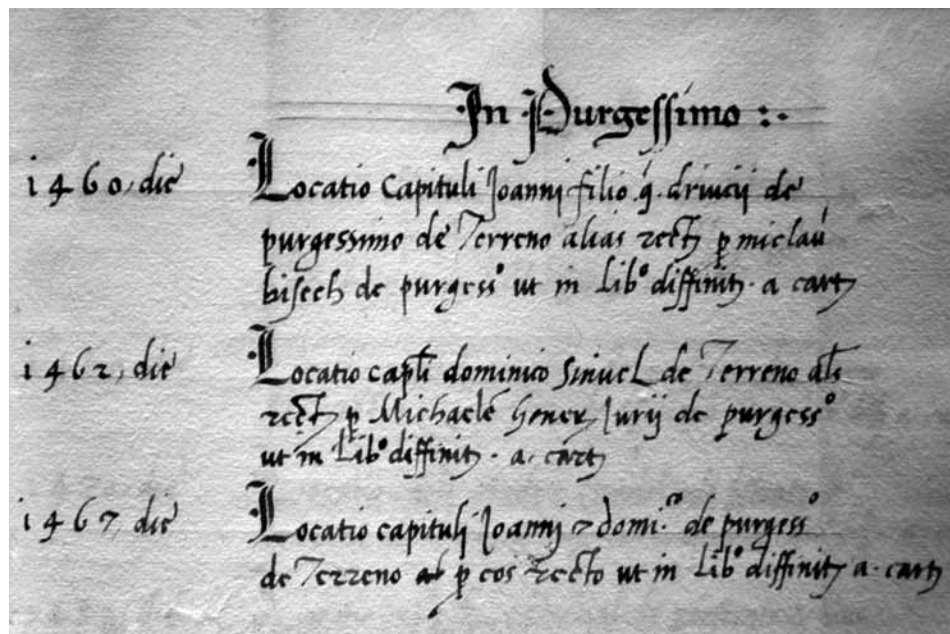 In Purgessimo :.
1460, die Locatio Capituli Joanni filio q. driucii de
purgessimo de Terreno alias rect p miclau
bisech de purgess° ut in Lib° diffinit. a cart
1462, die Locatio capli dominico Sinuel de Terreno als
rect p Michaele Jurii de purgess°
ut in Lib° diffinit. a. cart
1467, die Locatio capituli Joanni & domi.co de purgess°
de Terreno p eos recto ut in Lib° diffinit a. cart